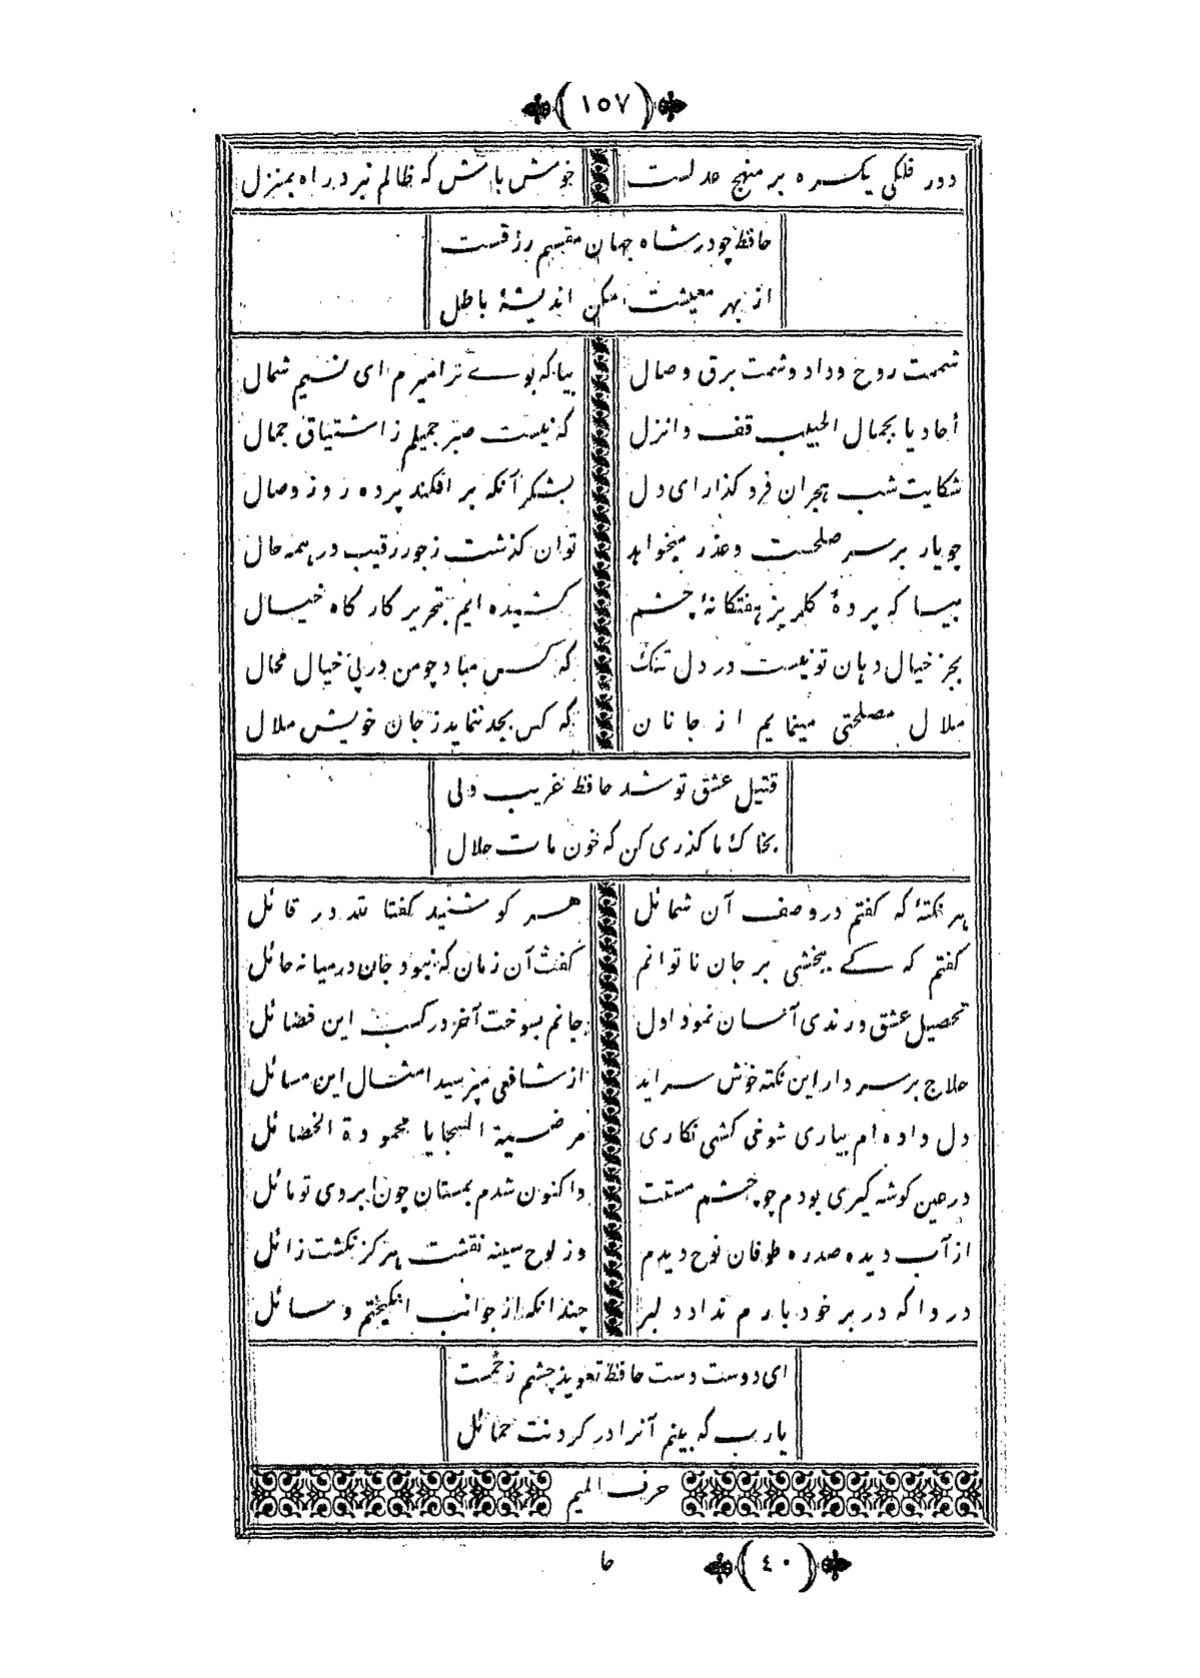 (١٥٧)
دور فلکی یکسره بر منهج عدلست خوش باش که ظالم نبرد راه بمنزل
حافظ چو در شاه جهان مقسم رزقست
از بهر معیشت مکن اندیشهٔ باطل
شممت روح وداد وشمت برق وصال بیا که بوے ترا میرم ای نسیم شمال
أحادیا بجمال الحبیب قف وانزل که نیست صبر جمیلم ز اشتیاق جمال
شکایت شب هجران فرو گذار ای دل بشکر آنکه بر افکند پرده روز وصال
چو یار بر سر صلحست وعذر میخواهد توان گذشت ز جور رقیب در همه حال
بیا که پردهٔ گلریز هفتگانهٔ چشم کشیده ایم بتحریر کارگاه خیال
بجز خیال دهان تو نیست در دل تنگ که کس مباد چو من در پی خیال محال
ملال مصلحتی مینمایم از جانان که کس بجد ننماید ز جان خویش ملال
قتیل عشق تو شد حافظ غریب ولی
بخاک ما گذری کن که خون مات حلال
هر نکتهٔ که گفتم در وصف آن شمائل هر کو شنید گفتا لله در قائل
گفتم که کے ببخشی بر جان ناتوانم گفت آن زمان که نبود جان در میانه حائل
تحصیل عشق ورندی آسان نمود اول جانم بسوخت آخر در کسب این فضائل
حلاج بر سر دار این نکته خوش سراید از شافعی مپرسید امثال این مسائل
دل داده ام بیاری شوخی کشی نگاری مرضیة السجایا محمودة الخصائل
در عین گوشه گیری بودم چو چشم مستت واکنون شدم بمستان چون ابروی تو مائل
از آب دیده صد ره طوفان نوح دیدم وز لوح سینه نقشت هرگز نگشت زائل
دردا که در بر خود بارم نداد دلبر چندانکه از جوانب انگیختم وسائل
ای دوست دست حافظ تعویذ چشم زخمست
یارب که بینم آنرا در گردنت حمائل
حرف المیم
(٤٠) حا